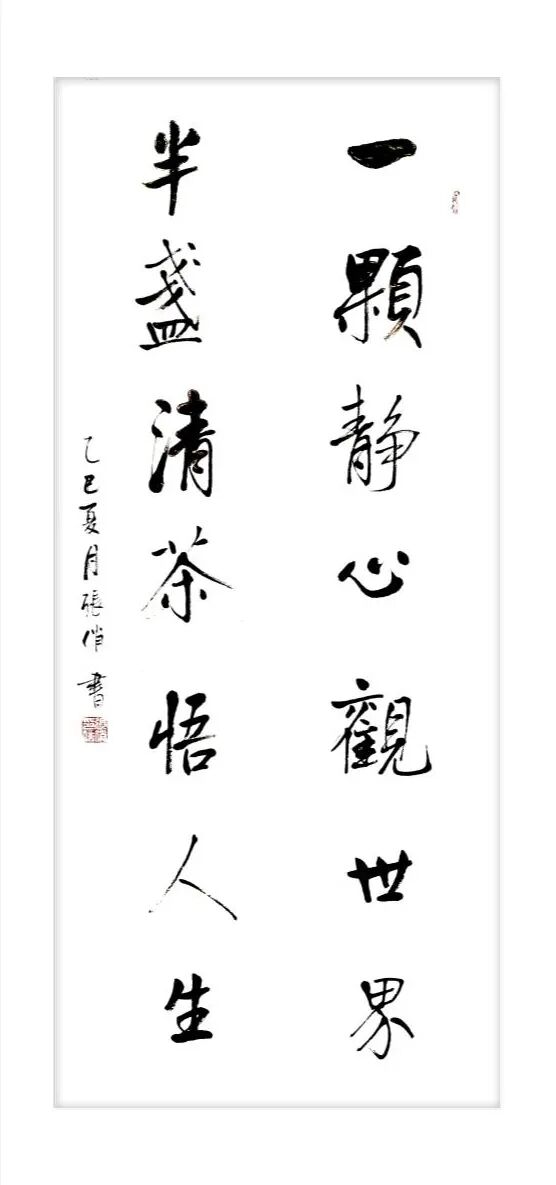 一顆静心觀世界
半盞清茶悟人生
乙巳夏月張俏書